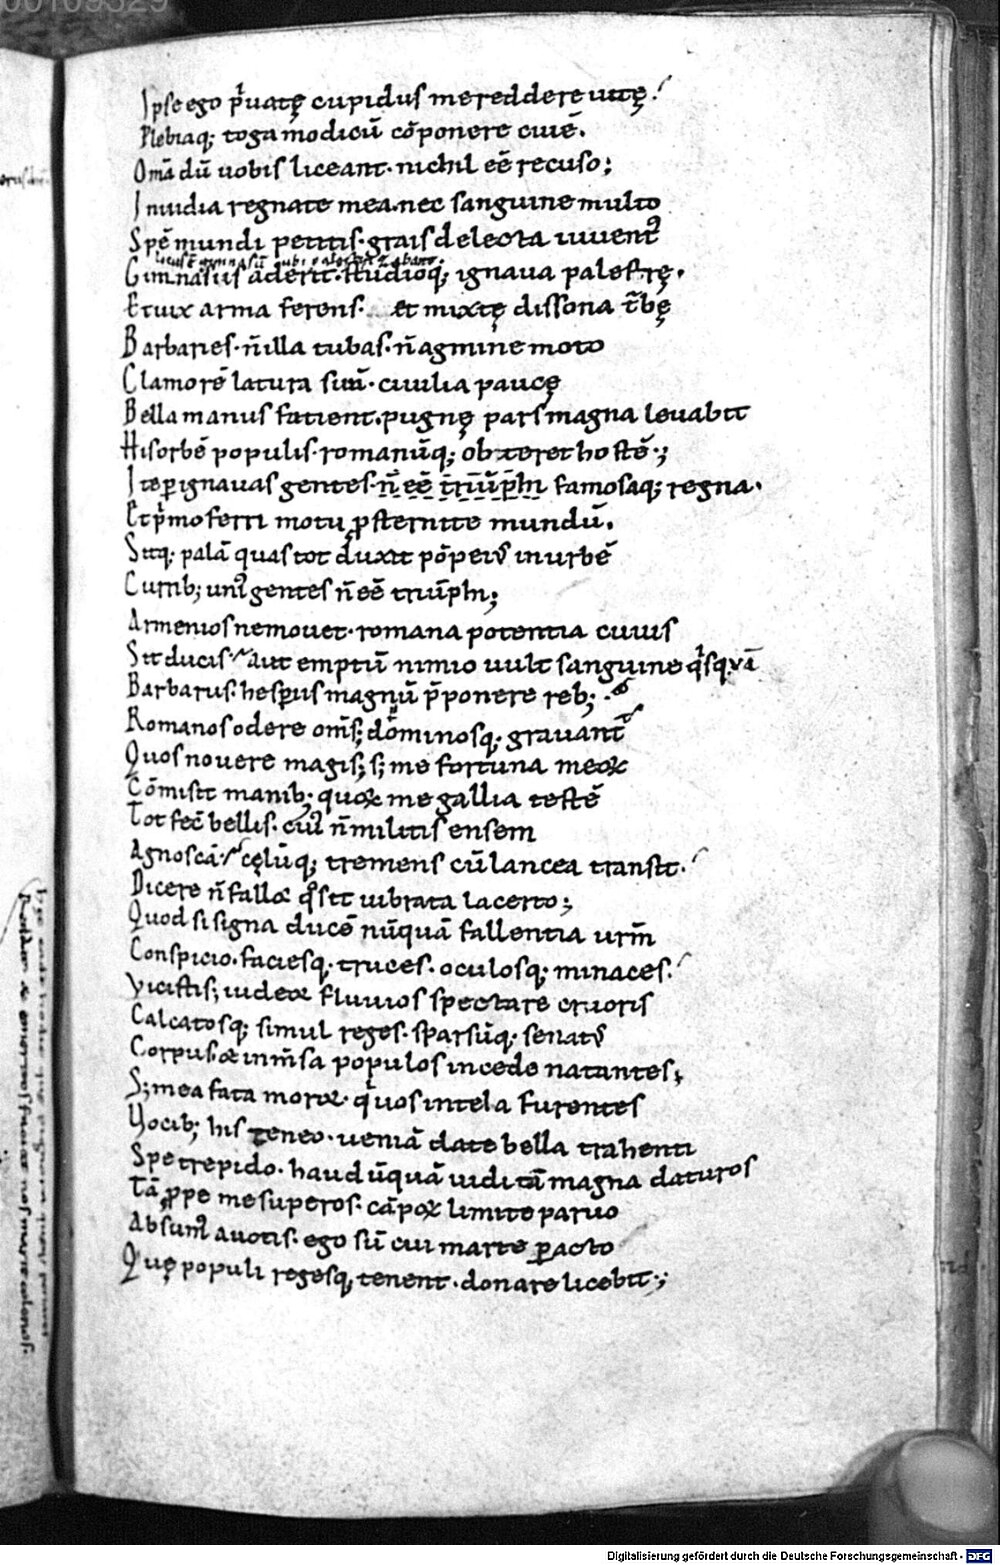 00109329
Ipse ego p̄uatę cupidus me reddere uitę.
Plebiaq; toga modicū cōponere ciuē.
Om̄a dū uobis liceant· nichil eē recuso;
Inuidia regnate mea· nec sanguine multo
Spē mundi petitis· grais delecta iuuent᷒
Gimnasiis aderit· studioq; ignaua palestrę.
Et uix arma ferens· et mixtę dissona t̄bę
Barbaries· n̄ illa tubas· n̄ agmine moto
Clamorē latura suū· ciuilia paucę
Bella manus fatient· pugnę pars magna leuabit
His orbē populis· romanūq; obteret hostē·;
Ite ꝑ ignauas gentes· n̄ eē triūphı famosaq; regna·
Et p̄mo ferri motu ꝓsternite mundū.
Sitq; palā quas tot duxit pōpei᷒ in urbē
Currib; uni᷒ gentes n̄ eē triūphi;
Armenios ne mouet· romana potentia cuius
Sit ducis aut emptū nimio uult sanguine q̄sqvā
Barbarus· hesꝑiis magnū p̄ponere reb;
Romanos odere om̄s; dōminosq; grauant᷒
Quos nouere magis; s; me fortuna meoꝝ
Cōmisit manib; quoꝝ me gallia testē
Tot fec̄ bellis· cui᷒ n̄ militis ensem
Agnoscā cęlūq; tremens cū lancea transit·
Dicere n̄ fallar q̄ sit uibrata lacerto;
Quod si signa ducē nūquā fallentia ur̄m
Conspicio· faciesq; truces· oculosq; minaces·
Vicistis; uideor fluuios spectare cruoris
Calcatosq; simul reges· sparsūq; senat᷒
Corpus· & in m̄sa populos in cede natantes;
S; mea fata moror· q̄ uos in tela furentes
Vocib; his teneo· ueniā date bella trahenti
Spe trepido· haud ūquā uidi tā magna daturos
Tā ꝓpe me superos· cāpoꝝ limite paruo
Absum᷒ a uotis· ego sū cui marte ꝑacto
Quę populi regesq; tenent· donare licebit·;
Digitalisierung gefördert durch die Deutsche Forschungsgemeinschaft - DFG